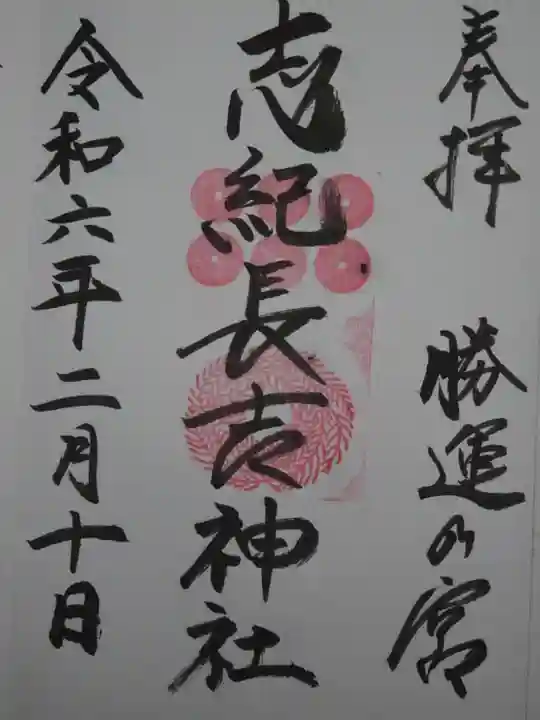 奉拝 勝運の宮
志紀長吉神社
令和六年二月十日